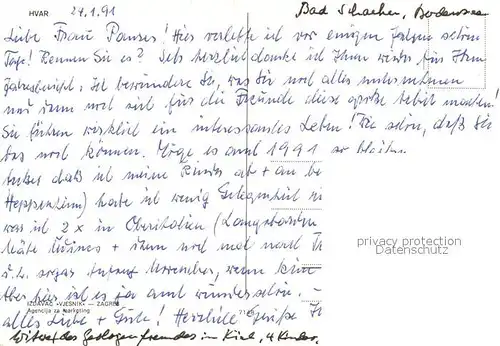 HVAR 24.1.91 Bad Schachen, Bodensee
Liebe Frau Panser! Hier verlebte ich vor einigen Jahren schöne
Tage! Kennen Sie es? Sehr herzlich danke ich Ihnen wieder für Ihren
Ich bewundere Sie, was Sie noch alles unternehmen
und dann noch sich für die Freunde diese große Arbeit machen!
Sie führen wirklich ein interessantes Leben! Wie schön, daß Sie
das noch können. Möge es auch 1991 so bleiben.
Außer daß ich meine Kinder ab + an be
Heppenheim) hatte ich wenig Gelegenheit
war ich 2x in Oberitalien (Langobarden
+ dann noch mal nach
u. zw. sogar Anfang November, wenn
Aber hier ist es ja auch wunderschön. -
IZDAVAČ »VJESNIK« — ZAGREB
Agencija za marketing
alles Liebe + Gute! Herzliche Grüße
Witwe des Geologenfreundes in Kiel, 4 Kinder,
privacy protection
Datenschutz